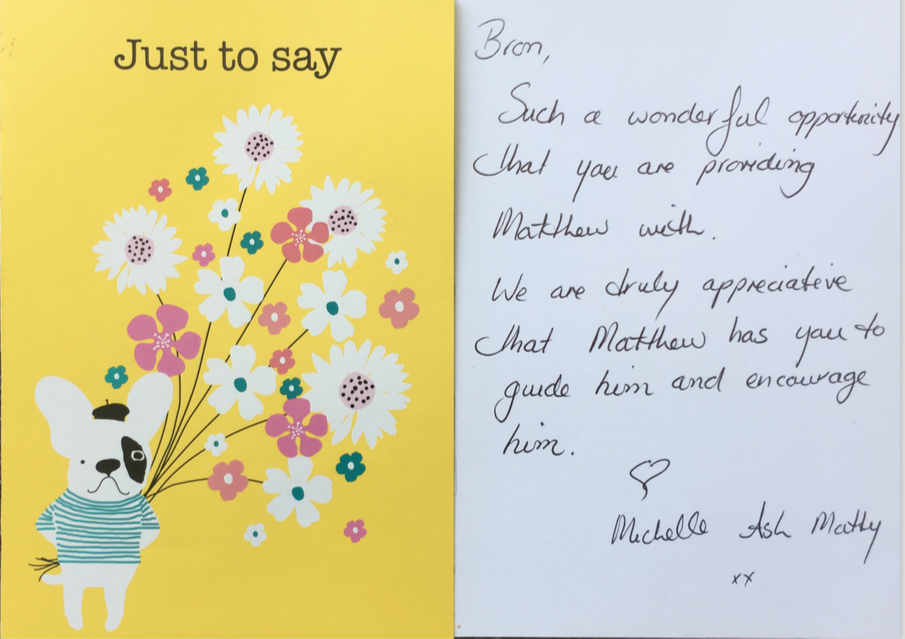 Just to say
Bron,
Such a wonderful opportunity
that you are providing
Matthew with.
We are truly appreciative
that Matthew has you to
guide him and encourage
him.
Michelle Ash Matty
xx